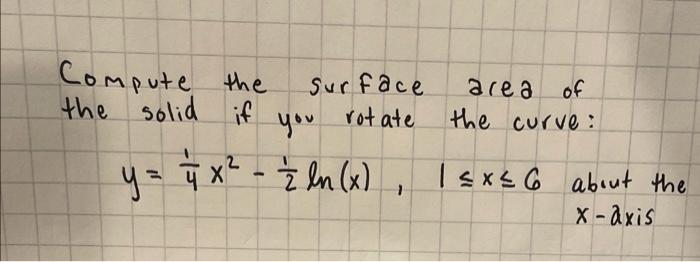 Compute the surface area of
the solid if you rotate the curve:
y = 1/4 x² - 1/2 ln(x) , 1 ≤ x ≤ 6 about the
x-axis